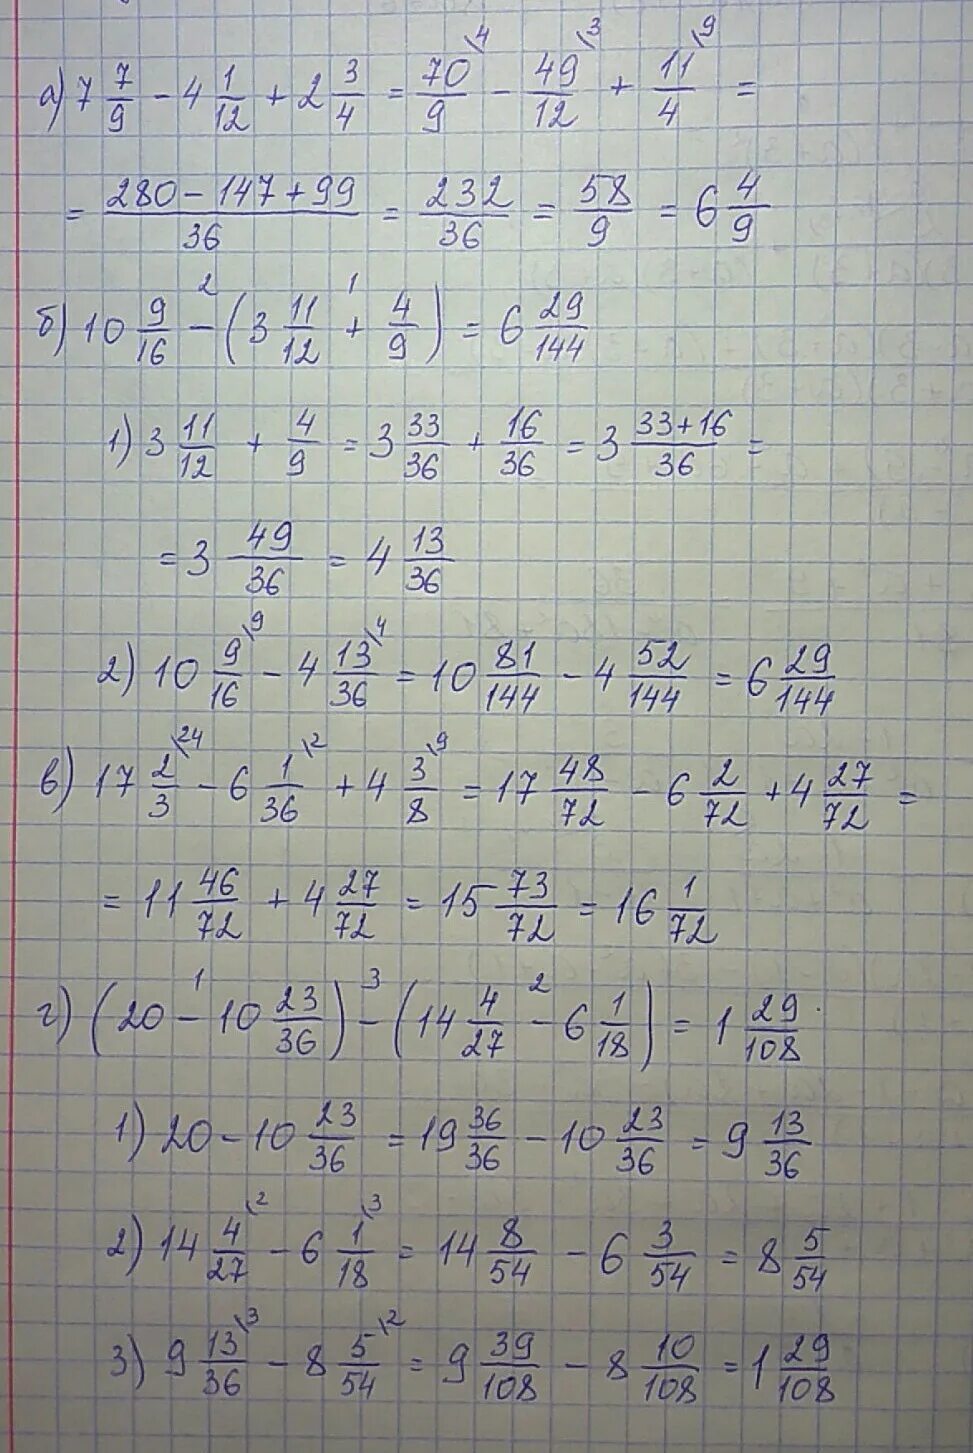 а) 7 7/9 − 4 1/12 + 2 3/4 = 70/9 \4 − 49/12 \3 + 11/4 \9 =
= (280 − 147 + 99)/36 = 232/36 = 58/9 = 6 4/9
б) 10 9/16 −² (3 11/12 +¹ 4/9) = 6 29/144
1) 3 11/12 + 4/9 = 3 33/36 + 16/36 = 3 (33+16)/36 =
= 3 49/36 = 4 13/36
2) 10 9/16 \9 − 4 13/36 \4 = 10 81/144 − 4 52/144 = 6 29/144
в) 17 2/3 \24 − 6 1/36 \2 + 4 3/8 \9 = 17 48/72 − 6 2/72 + 4 27/72 =
= 11 46/72 + 4 27/72 = 15 73/72 = 16 1/72
г) (20 −¹ 10 23/36) −³ (14 4/27 −² 6 1/18) = 1 29/108.
1) 20 − 10 23/36 = 19 36/36 − 10 23/36 = 9 13/36
2) 14 4/27 \2 − 6 1/18 \3 = 14 8/54 − 6 3/54 = 8 5/54
3) 9 13/36 \3 − 8 5/54 \2 = 9 39/108 − 8 10/108 = 1 29/108